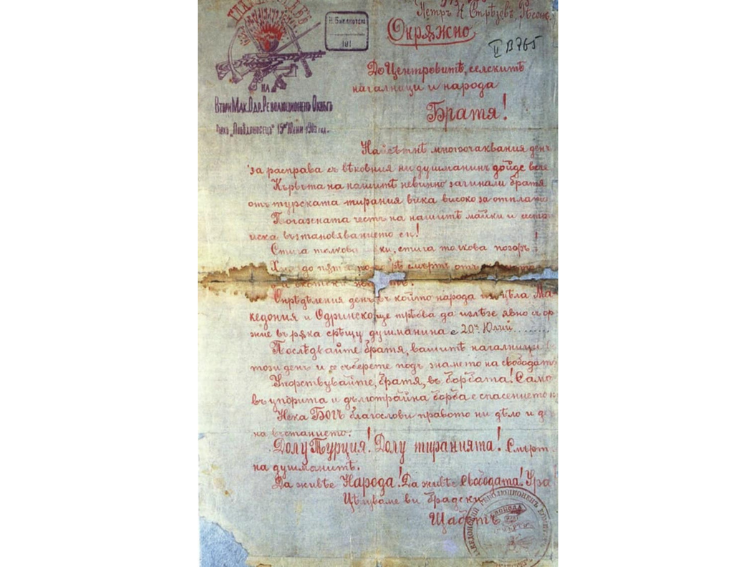 Окрѫжно
II В 765
До Центровитѣ, селскитѣ
нагалници и народа
Братя!
НА
ВТОРИ МАК. ОДР. РЕВОЛЮЦИОНЕНЪ ОКРѪГЪ
многоочаквания день
за расправа съ вѣковния ни душманинъ дойде вече
Кръвьта на нашитѣ невинно загинали братя
отъ турската тирания вика високо за отплата
Погазената честь на нашитѣ майки и сестри
иска възтановяванието си!
Стига толкова ки, стига толкова позоръ!
по смърть отъ
Опрѣдѣления день въ който народа въ цѣла Ма
кедония и Одринско ще трѣбва да излезе явно съ ор
жие въ рѫка срѣщу душманина е 20й Юлий
Послѣдвайте братя, вашитѣ нагалници
този день и се съберете подъ знамето на свободата
Упорствувайте, братя, въ борбата! Само
въ упорита и дълготрайна борба е спасението н
Нека Богъ благослови правото ни дѣло и де
на въстанието.
Долу Турция! Долу тиранията! Смърть
на душманитѣ.
Да живѣе Народа! Да живѣе Свободата! Ура
Цѣлуваме ви братски
Щабътъ